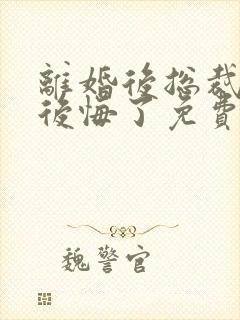 離婚後総裁
後悔了免費
魏警官